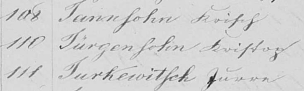 108 Tunnsohn Krisch
110 Jürgensohn Kristop
111 Jurkewitsch Jurre